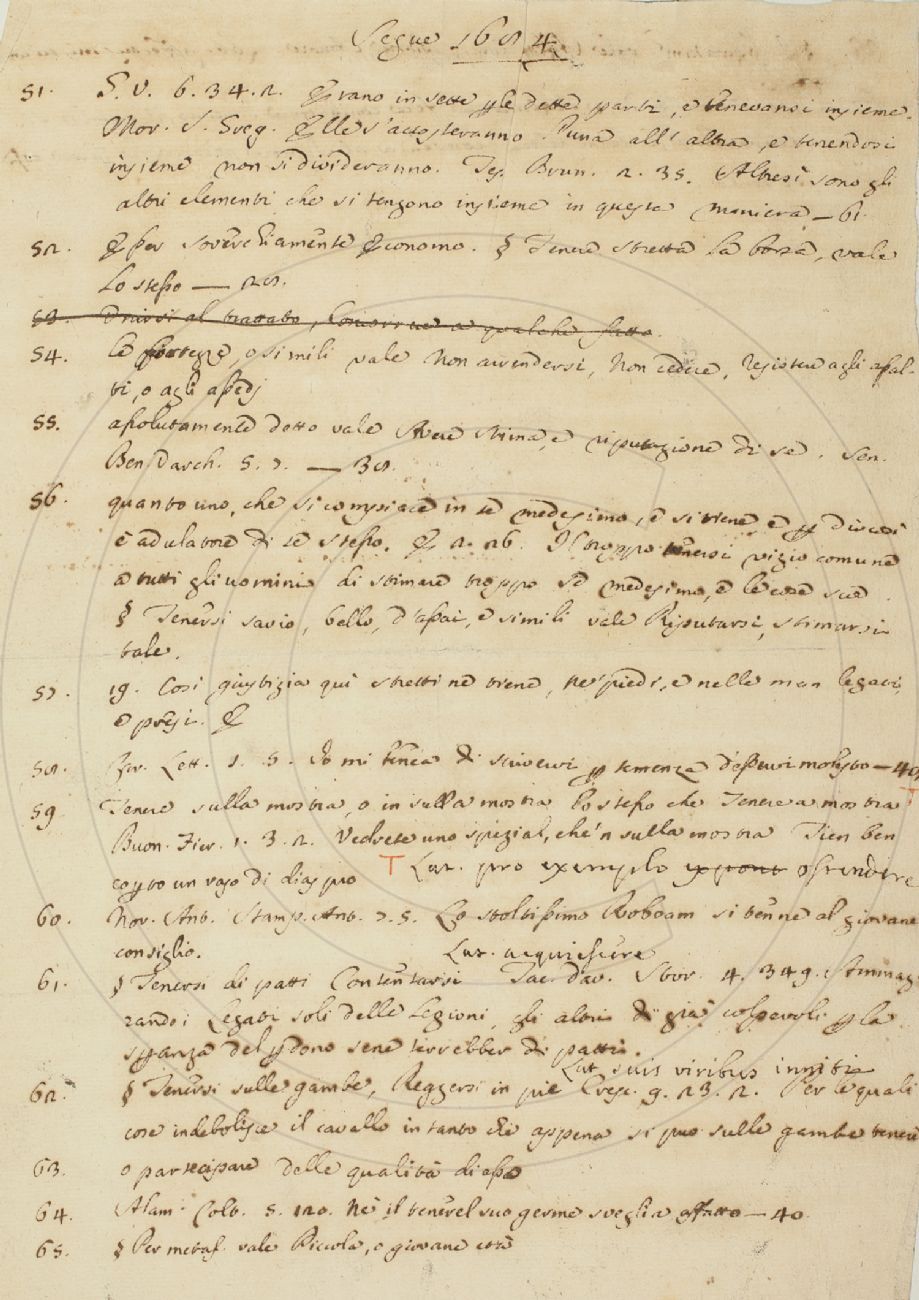 Segue 1684
51. G. V. 6. 34. 2. Erano in sette per le dette parti, e tenevonsi insieme.
Mor. S. Greg. Elle s'accosteranno l'una all'altra, e tenendosi
insieme non si divideranno. Tes. Brun. 2. 35. Altresì sono gli
altri elementi che si tengono insieme in questa maniera — 61.
52. Esser soverchiamente Economo. § Tenere stretta la borsa, vale
Lo stesso — 28.
53. al trattato, a qualche fatto.
54. le fortezze, o simili vale Non arrendersi, Non cedere, resistere agli assal-
ti, o agli assedj
55. assolutamente detto vale Avere stima, e riputazione di se. Sen.
Ben. Varch. 5. 7. — 38.
56. quanto uno, che si compiace in se medesimo, e si tiene e per Dio così
è adulatore di se stesso. E 2. 26. Il troppo tenersi vizio comune
a tutti gli uomini di stimare troppo se medesimo, e le cose sue.
§ Tenersi savio, bello, d'assai, e simili vale Riputarsi, stimarsi
tale.
57. 19. Così giustizia qui stretti ne tiene, ne' piedi, e nelle man legati,
e presi. E
58. Lett. 1. 5. Io mi tenea di scrivervi per temenza d'esservi molesto — 40.
59 Tenere sulla mostra, o in sulla mostra lo stesso che Tenere a mostra
Buon. Fier. 1. 3. 2. Vedrete uno spezial, che 'n sulla mostra Tien ben
coperto un vaso di diaspro T Lat. pro exemplo ostendere
60. Nov. Ant. Stamp. Ant. 7. 5. Lo stoltissimo Roboam si tenne al giovane
consiglio. Lat. acquiescere
61. § Tenersi di patti Contentarsi Tac. Dav. Stor. 4. 349. Ammaz
zandoi Legati soli delle Legioni, gli altri di già colpevoli per la
speranza del perdono sene terrebber di patti.
Lat. suis viribus inniti
62. § Tenersi sulle gambe, Reggersi in piè Cresc. 9. 23. 2. Per le quali
cose indebolisce il cavallo in tanto che appena si può sulle gambe tenere
63. o partecipare delle qualità d'essa
64. Alam. Colt. 5. 120. Nè il tenerel suo germe sveglia affatto — 40
65. § Per metaf. vale Piccola, o giovane età